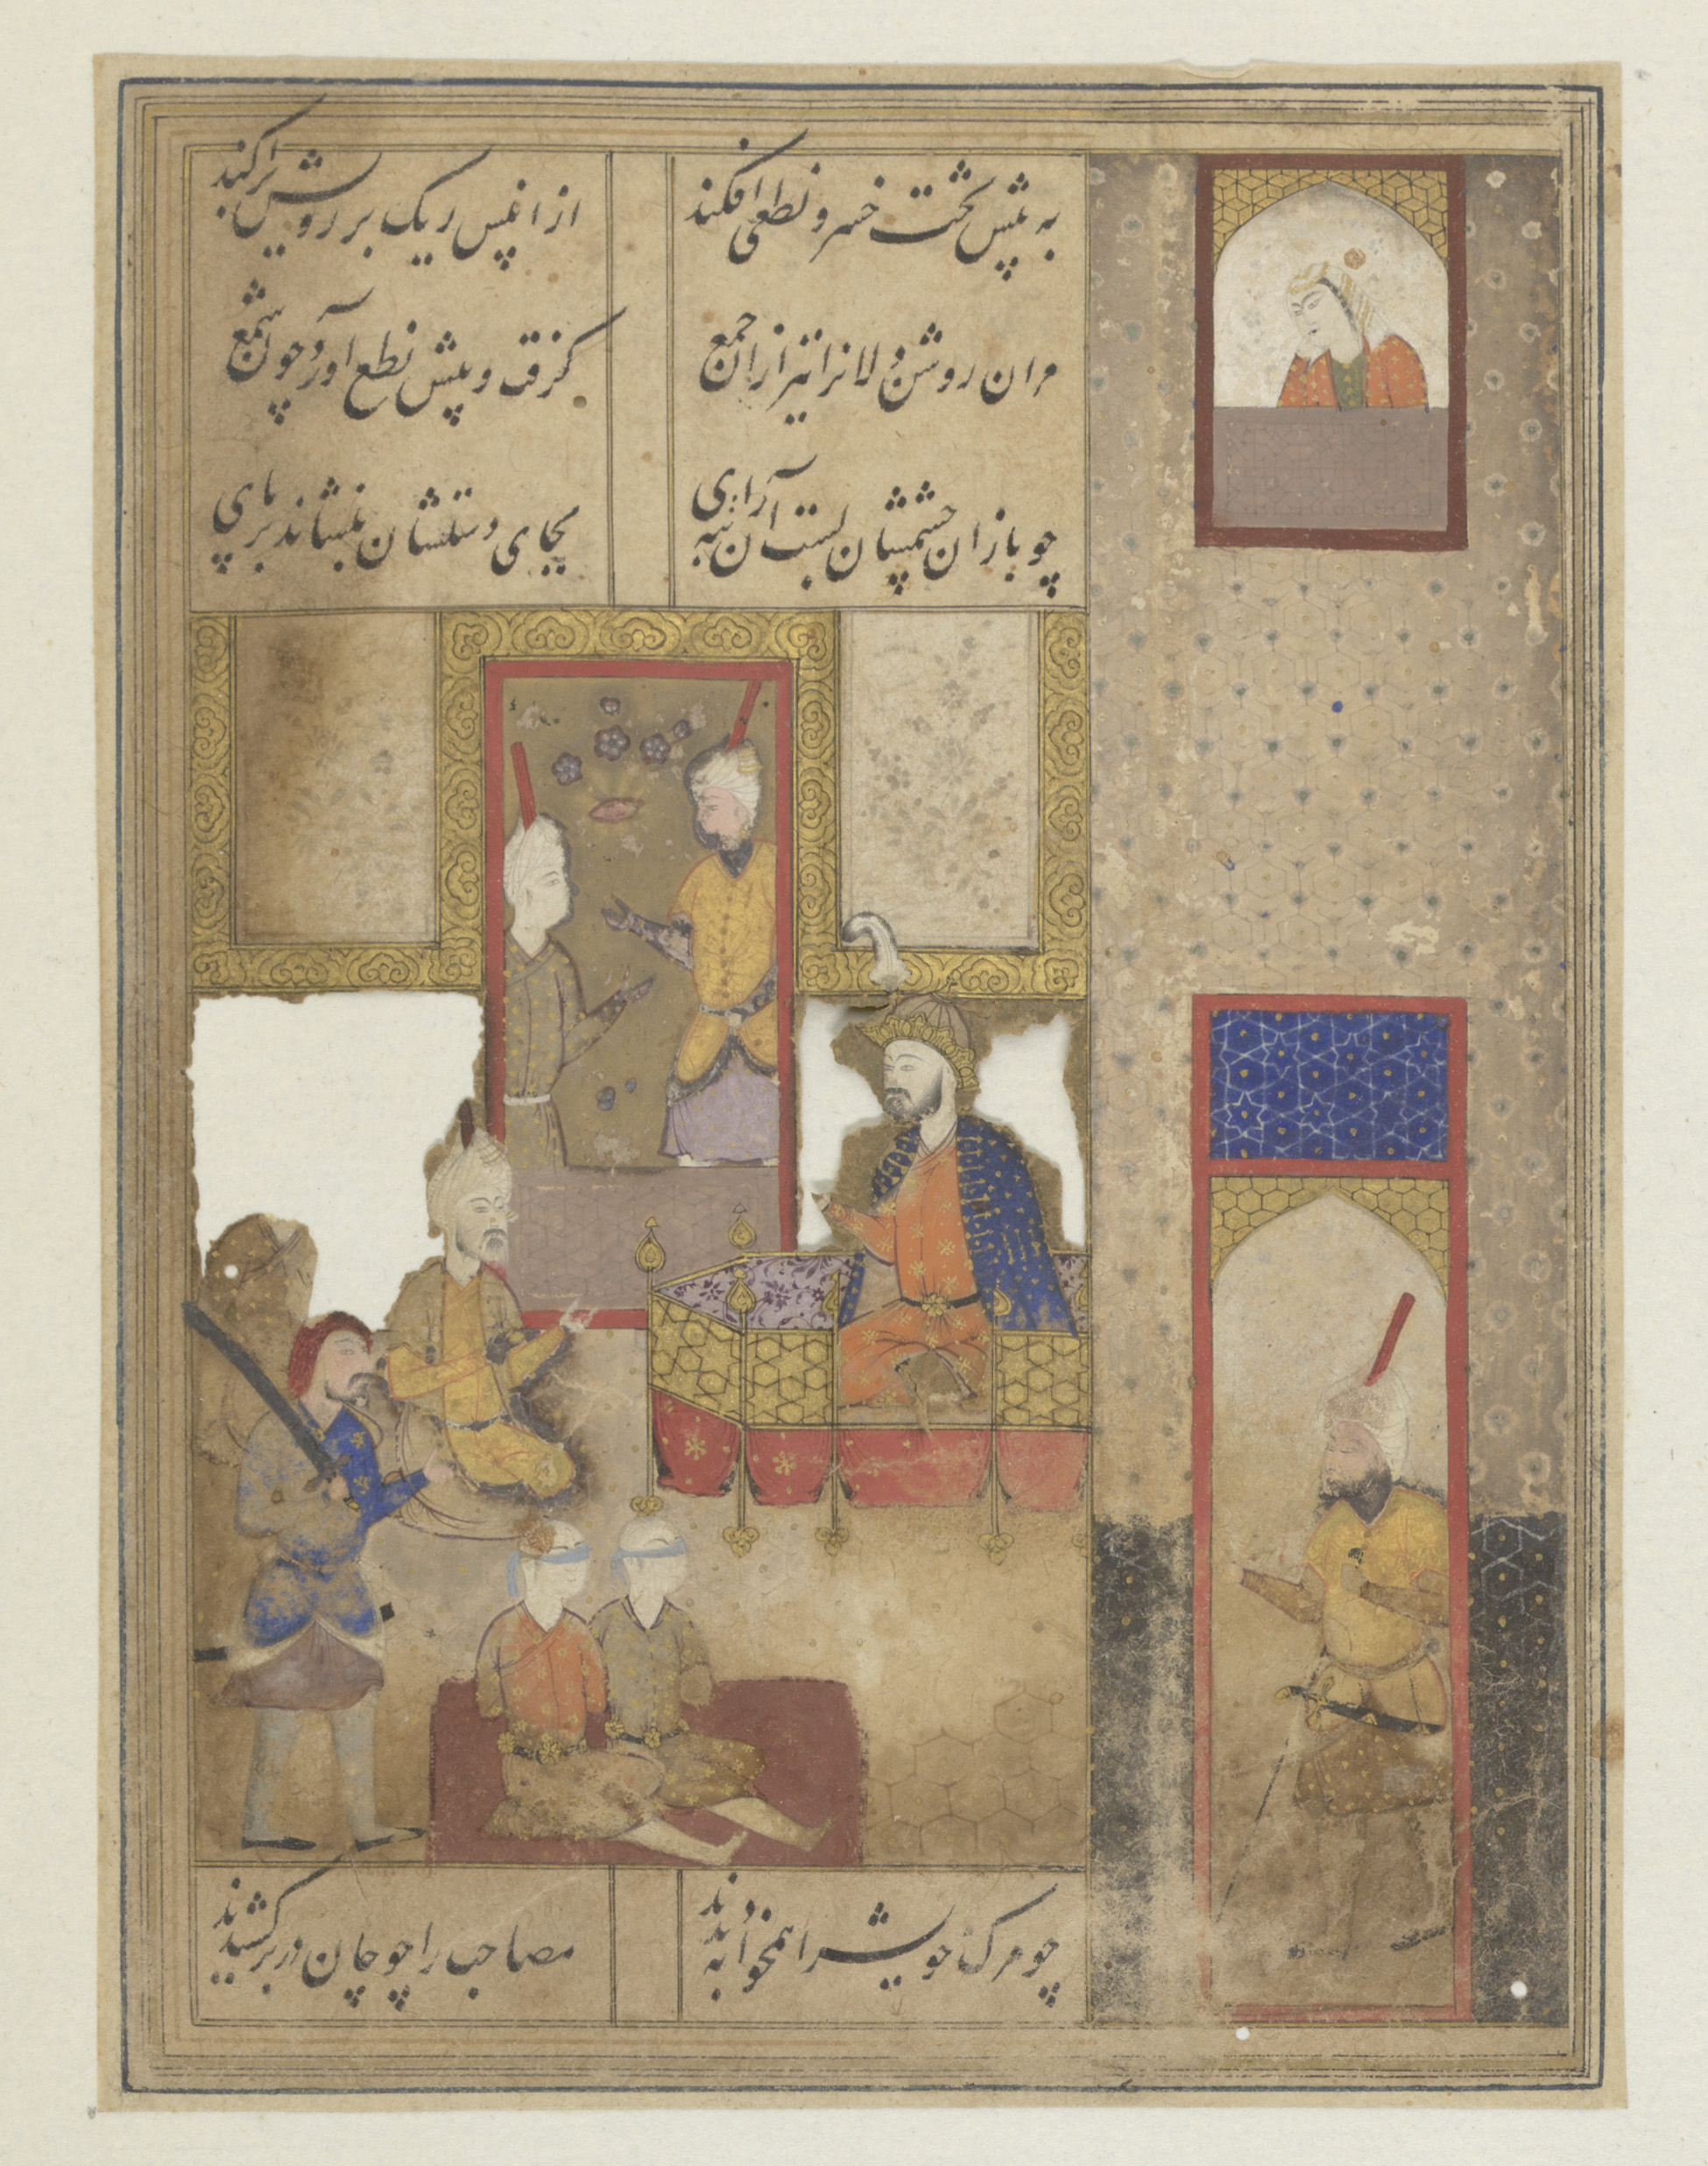 به پیش تخت خسرو نطعی افکند
از انپس ریک بر رویش پراکند
مران روشن دلانرا تیز ازان جمع
گرفت و پیش نطع آورد چون شمع
چو بازان چشمشان بست آن تبه رای
بجای دستشان بنشاند بر پای
چو مرک خویش را همخوابه دیدند
مصاحب را چو جان در بر کشیدند